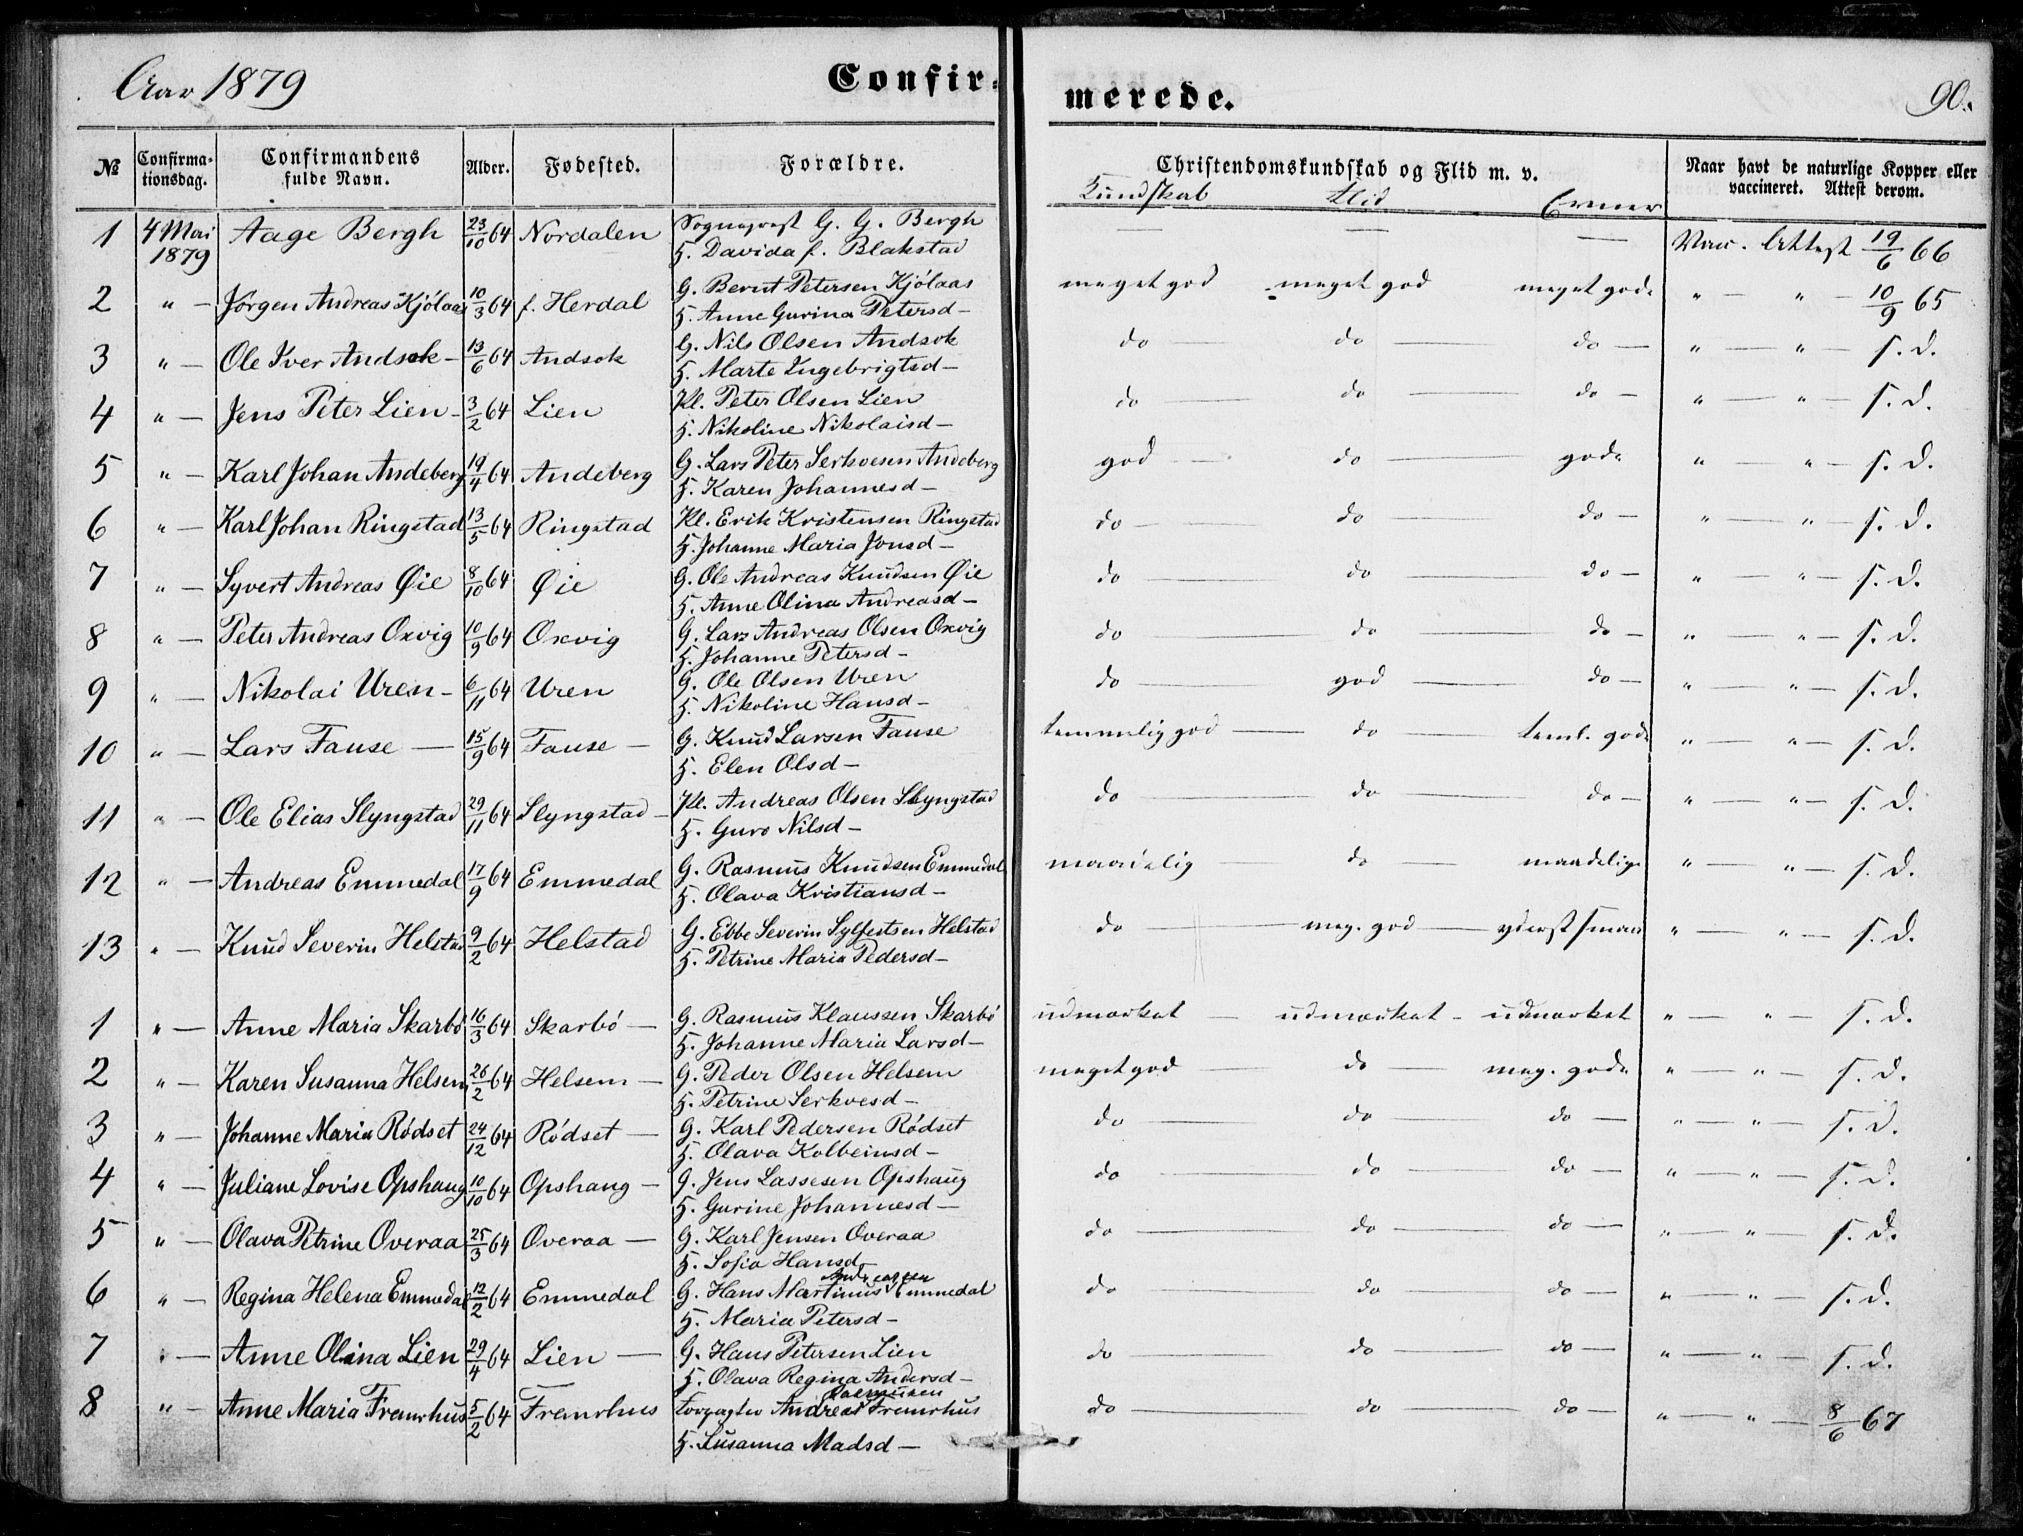 Aar 1879 Confir-
merede. 90.
No Confirmationsdag. Confirmandens fulde Navn. Alder. Fødested. Forældre. Christendomskundskab og Flid m. v. Naar havt de naturlige Kopper eller vaccineret. Attest derom.
Kundskab Flid Evner
1 4 Mai 1879 Aage Bergh 23/10 64 Nordalen Sognepræst G. G. Bergh — — — Vac. Attest 19/6 66
H. Davida f. Blakstad
2 " — Jörgen Andreas Kjölaas 10/3 64 f. Herdal G. Bernt Petersen Kjölaas meget god meget god meget gode " — " — 10/9 65
H. Anne Gurina Petersd —
3 " — Ole Iver Andsok — 13/6 64 Andsok G. Nils Olsen Andsok do do — do — " — " — s. d.
H. Marte Ingebrigtsd —
4 " — Jens Peter Lien — 3/2 64 Lien Kl. Peter Olsen Lien do — do — do — " — " — s. d.
H. Nikoline Nikolaisd —
5 " — Karl Johan Andeberg 19/4 64 Andeberg G. Lars Peter Serkvesen Andeberg god — do — gode " — " — s. d.
H. Karen Johannesd —
6 " — Karl Johan Ringstad 13/5 64 Ringstad Kl. Erik Kristensen Ringstad do — do — do — " — " — s. d.
H. Johanne Maria Jonsd —
7 " — Syvert Andreas Øie 8/10 64 Øie G. Ole Andreas Knudsen Øie do do do — " — " — s. d.
H. Anne Olina Andreasd —
8 " — Peter Andreas Oxvig 10/9 64 Oxvig G. Lars Andreas Olsen Oxvig do do — do — " — " — s. d.
H. Johanne Petersd —
9 " — Nikolai Uren — 6/11 64 Uren G. Ole Olsen Uren do — god — do — " — " — s. d.
H. Nikoline Hansd —
10 " — Lars Fause — 15/9 64 Fause — G. Knud Larsen Fause temmelig god — do — teml. gode " — " — s. d.
H. Elen Olsd —
11 " — Ole Elias Slyngstad 29/11 64 Slyngstad — Kl. Andreas Olsen Slyngstad do — do — do — " — " — s. d.
H. Guro Nilsd —
12 " — Andreas Emmedal 17/9 64 Emmedal G. Rasmus Knudsen Emmedal maadelig — do — maadelige " — " — s. d.
H. Olava Kristiansd —
13 " — Knud Severin Helstad 9/2 64 Helstad G. Ebbe Severin Sylfestsen Helstad do — meg. god — yderst smaa " — " — s. d.
H. Petrine Maria Pedersd —
1 " — Anne Maria Skarbö 16/3 64 Skarbö — G. Rasmus Klaussen Skarbö udmærket — udmærket — udmærket " — " — s. d.
H. Johanne Maria Larsd —
2 " — Karen Susanna Helsem 26/2 64 Helsem — G. Peder Olsen Helsem meget god — do — meg. gode " — " — s. d.
H. Petrine Serkvesd —
3 " — Johanne Maria Rödset 24/12 64 Rödset — G. Karl Pedersen Rödset do — do — do — " — " — s. d.
H. Olava Kolbeinsd —
4 " — Juliane Lovise Opshaug 10/10 64 Opshaug — G. Jens Lassesen Opshaug do — do — do — " — " — s. d.
H. Gurine Johannesd —
5 " — Olava Petrine Overaa 25/3 64 Overaa — G. Karl Jensen Overaa do — do — do — " — " — s. d.
H. Sofia Hansd
6 " — Regina Helena Emmedal 12/2 64 Emmedal G. Hans Martinus Andreassen Emmedal do — do — do — " — " — s. d.
H. Maria Petersd —
7 " — Anne Olina Lien 29/4 64 Lien — G. Hans Petersen Lien do — do — do — " — " — s. d.
H. Olava Regina Andersd —
8 " — Anne Maria Fremrhus 5/2 64 Fremrhus Forpagter Andreas Rasmusen Fremrhus do — do — do — " — " — 8/6 67
H. Susanna Madsd —